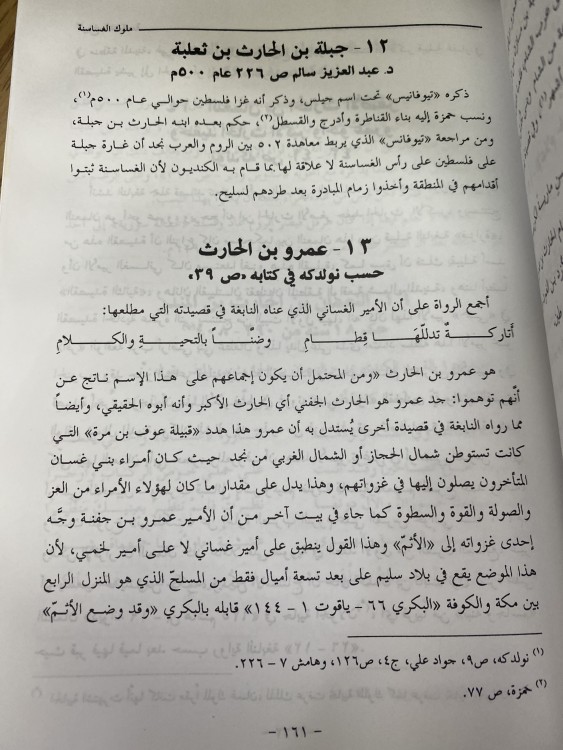 ملوك الغساسنة
١٢- جبلة بن الحارث بن ثعلبة
د. عبد العزيز سالم ص ٢٢٦ عام ٥٠٠م
ذكره «تيوفانيس» تحت اسم جبلس، وذكر أنه غزا فلسطين حوالي عام ٥٠٠م(١)،
ونسب حمزة إليه بناء القناطر وأدرج والقسطل(٢)، حكم بعده ابنه الحارث بن جبلة،
ومن مراجعة «تيوفانس» الذي يربط معاهدة ٥٠٢ بين الروم والعرب نجد أن غارة جبلة
على فلسطين على رأس الغساسنة لا علاقة لها بما قام به الكنديون لأن الغساسنة ثبتوا
أقدامهم في المنطقة وأخذوا زمام المبادرة بعد طردهم لسليح.
١٣- عمرو بن الحارث
حسب نولدكه في كتابه «ص ٣٩»
أجمع الرواة على أن الأمير الغساني الذي عناه النابغة في قصيدته التي مطلعها:
أتاركةٌ تدللّهَا قِطامِ وضنّاً بالتحيةِ والكلامِ
هو عمرو بن الحارث «ومن المحتمل أن يكون إجماعهم على هذا الإسم ناتج عن
أنّهم توهموا: جد عمرو هو الحارث الجفني أي الحارث الأكبر وأنه أبوه الحقيقي، وأيضاً
مما رواه النابغة في قصيدة أخرى يُستدل به أن عمرو هذا هدد «قبيلة عوف بن مرة» التي
كانت تستوطن شمال الحجاز أو الشمال الغربي من نجد حيث كان أمراء بني غسان
المتأخرون يصلون إليها في غزواتهم، وهذا يدل على مقدار ما كان لهؤلاء الأمراء من العز
والصولة والقوة والسطوة كما جاء في بيت آخر من أن الأمير عمرو بن جفنة وجَّه
إحدى غزواته إلى «الأتمّ» وهذا القول ينطبق على أمير غساني لا على أمير لخمي، لأن
هذا الموضع يقع في بلاد سليم على بعد تسعة أميال فقط من المسلحّ الذي هو المنزل الرابع
بين مكة والكوفة «البكري ٦٦ - ياقوت ١ - ١٤٤» قابله بالبكري «وقد وضع الأتمّ»
(١) نولدكه، ص٩، جواد علي، ج٤، ص١٢٦، وهامش ٧ - ٢٢٦.
(٢) حمزة، ص ٧٧.
- ١٦١ -